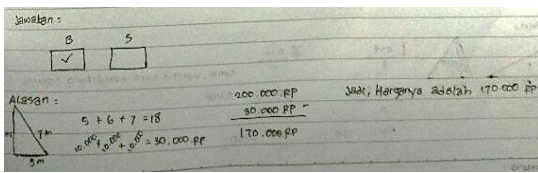 Jawaban :
B S
✓
Alasan :
5 + 6 + 7 = 18
10.000 + 10.000 + 10.000 = 30.000 RP
7m
5m
200.000 RP
30.000 RP -
170.000 RP
Jadi, Harganya adalah 170.000 RP